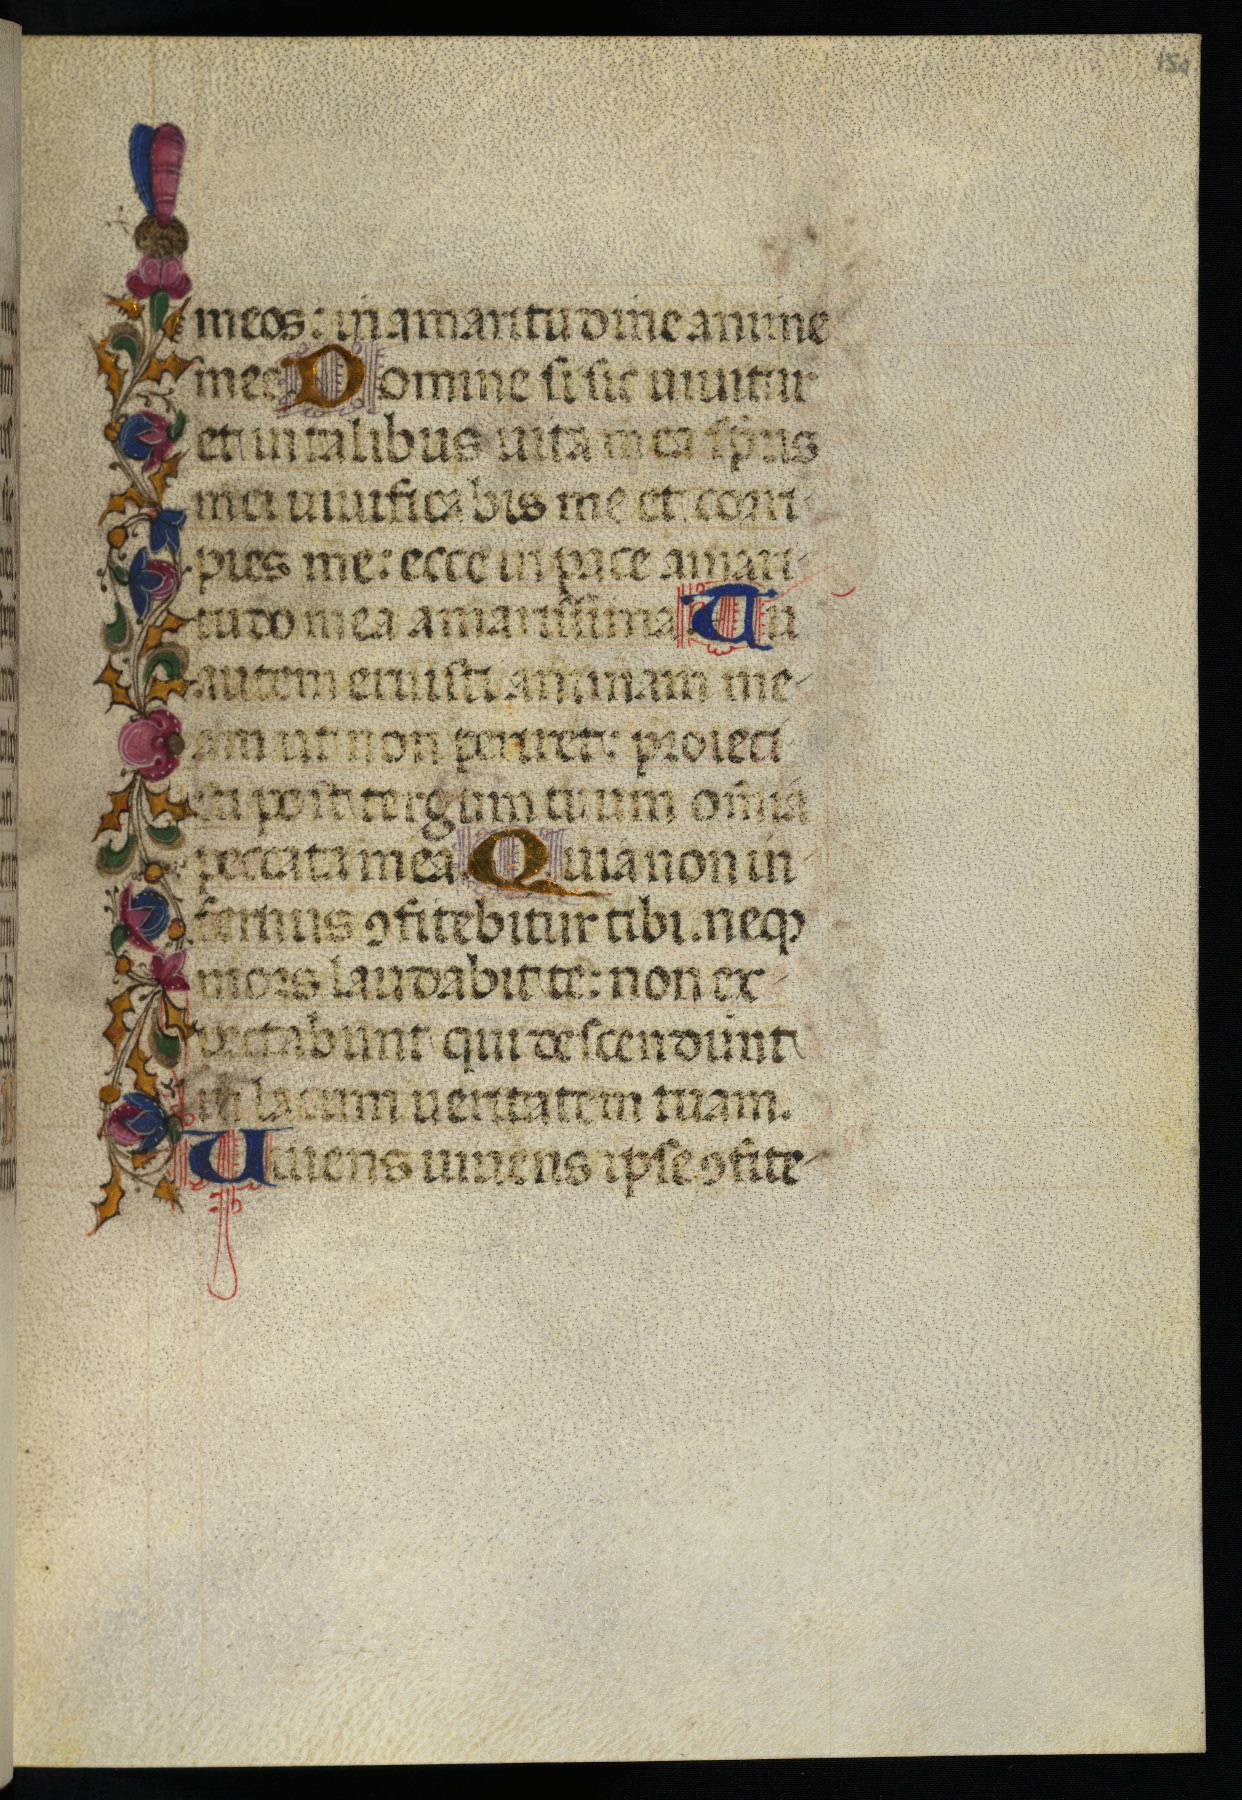 154
meos: in amaritudine anime
mee Domine si sic uiuitur
et in talibus uita mea sp̄us
mei uiuificabis me et corri
pies me: ecce in pace amari
tudo mea amarissima Tu
autem eruisti animam me
am ut non periret: proiecti
sti post tergum tuum om̄ia
peccata mea Quia non in
fernus ꝯfitebitur tibi. neqꝫ
mors laudabit te: non ex
pectabunt qui descendunt
in lacum ueritatem tuam.
Uiuens uiuens ipse ꝯfite